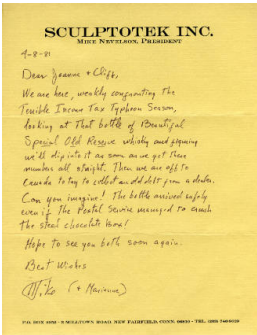 SCULPTOTEK INC.
MIKE NEVELSON, PRESIDENT
4-8-81
Dear Jeanne + Cliff,
We are here, weakly confronting the
Terrible Income Tax Typhoon Season,
looking at that bottle of Beautiful
Special Old Reserve whisky and figuring
we'll dip into it as soon as we get these
numbers all straight. Then we are off to
Canada to try to collect an old debt from a dealer.
Can you imagine! The bottle arrived safely
even if the Postal Service managed to crush
the steel chocolate box!
Hope to see you both soon again.
Best Wishes
Mike (+ Marianne)
MILLTOWN ROAD, NEW FAIRFIELD, CONN.